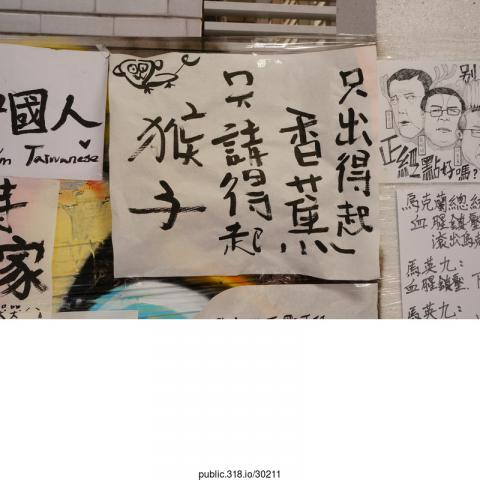 國人
I'm Taiwanese
家
只出得起
香蕉
只請得起
猴子
别
正經點好嗎?
烏克蘭總統
血腥鎮壓
滾出烏
馬英九:
血腥鎮壓
馬英九:
public.318.io/30211